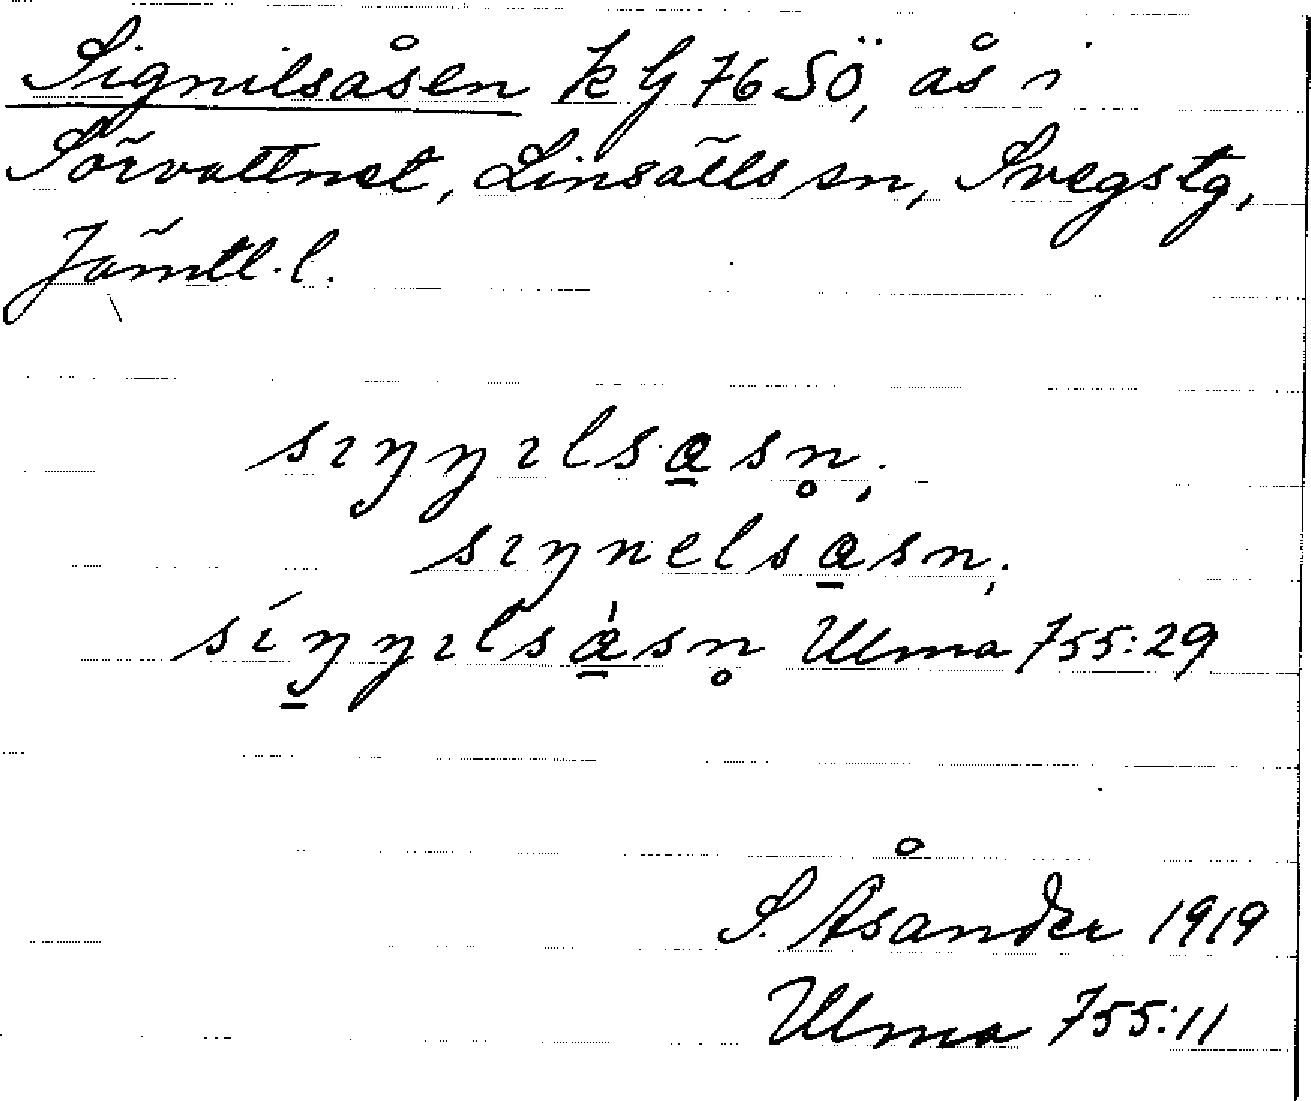 Signilsåsen k G 76 SÖ, ås i
Sörvattnet, Linsälls sn, Svegs tg,
Jämtl. l.
sıŋŋılsa̲sn̥,
sıŋnelsa̲sn,
síŋ̲ŋılsá̲sn̥ Ulma 755:29
S. Åsander 1919
Ulma 755:11